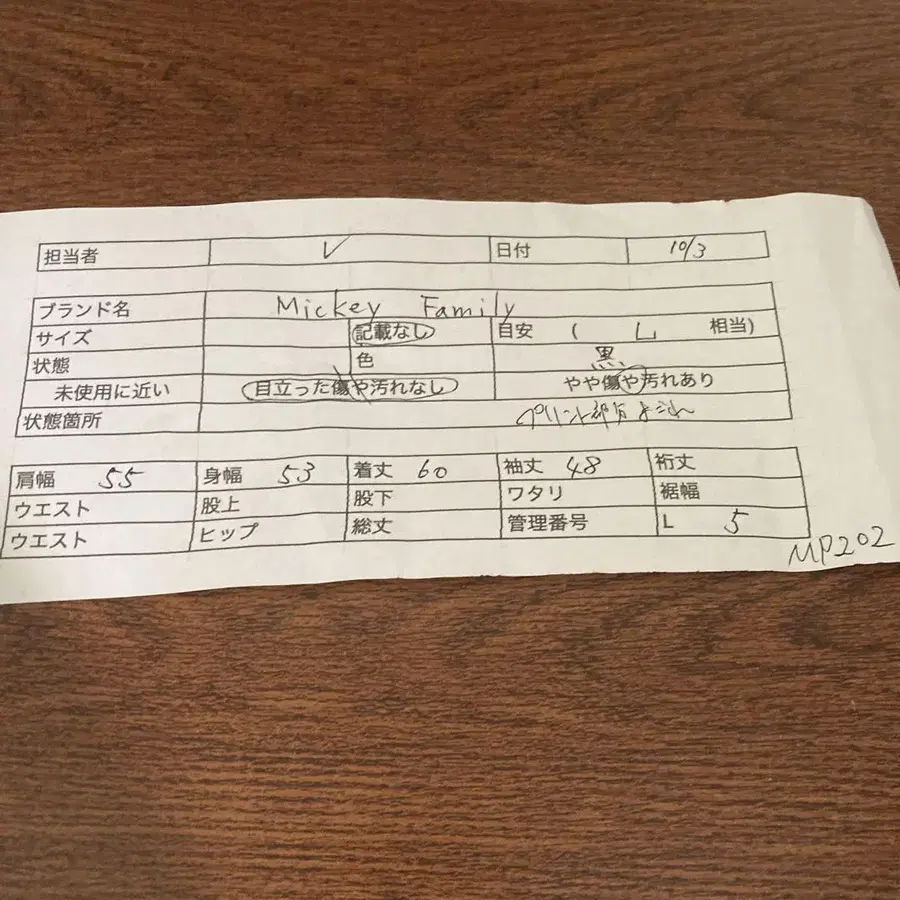 担当者 V 日付 10/3
ブランド名 Mickey Family
サイズ 記載なし 目安 ( L 相当)
状態 色 黒
未使用に近い 目立った傷や汚れなし やや傷や汚れあり
状態箇所 プリント部分よごれ
肩幅 55 身幅 53 着丈 60 袖丈 48 裄丈
ウエスト 股上 股下 ワタリ 裾幅
ウエスト ヒップ 総丈 管理番号 L 5
MP202